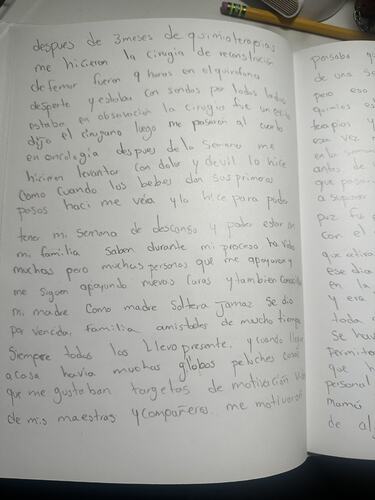 despues de 3 meses de quimioterapias
me hicieron la cirugia de reconstrucción
de femur fueron 9 horas en el quirofano
desperte y estaba con sondas por todos lados
estaba en observación la cirugia fue un exito
dijo el cirujano luego me pasaron al cuarto
en oncología despues de la semana me
hicieron levantar con dolor y devil lo hice
como cuando los bebes dan sus primeros
pasos haci me veia y lo hice para poder
tener mi semana de descanso y poder estar con
mi familia saben durante mi proceso ha vido
muchas pero muchas personas que me apoyaron y
me siguen apoyando nuevas caras y tambien
mi madre como madre soltera jamaz se dio
por vencida. familia amistades de mucho tiempo
Siempre todos los llevo presente, y cuando
a casa havia muchas globos peluches cosas
que me gustaban targetas de motivación
de mis maestras y compañeros me motivaron
pensaba
de una
pero eso
quimios
terapias y
esa vez
en la
antes de
que
a
paz fu
con el
que
ese dia
en la
y era
toda
se hav
permit
que h
personal
mamá
de al